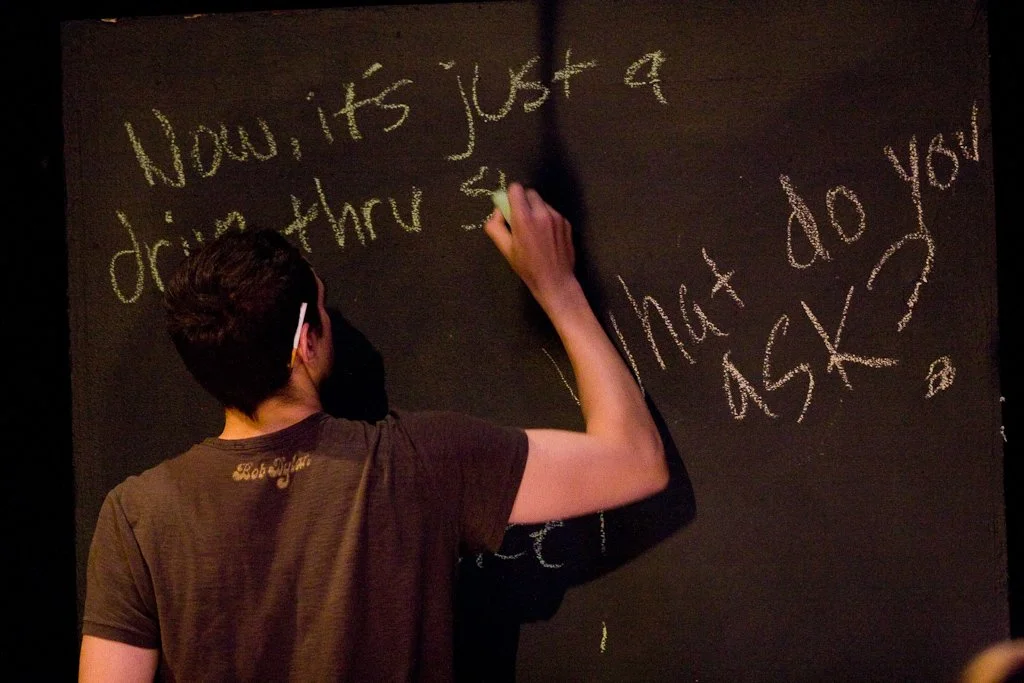 Now, it's just a
drive thru
What do you
ask?
Bob Dylan